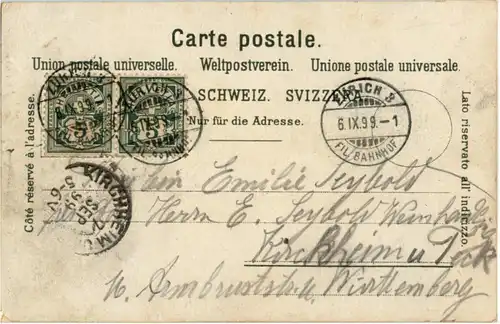 Carte postale.
Union postale universelle. Weltpostverein. Unione postale universale.
SCHWEIZ. SVIZZERA.
Nur für die Adresse.
Côté réservé à l'adresse.
Lato riservato all'indirizzo.
5 5
ZÜRICH 3
6.IX.99.-1
FIL. BAHNHOF
KIRCHHEIM
SEP
Emilie Seybold
Herrn E. Seybold
Kirchheim u Teck
Württemberg